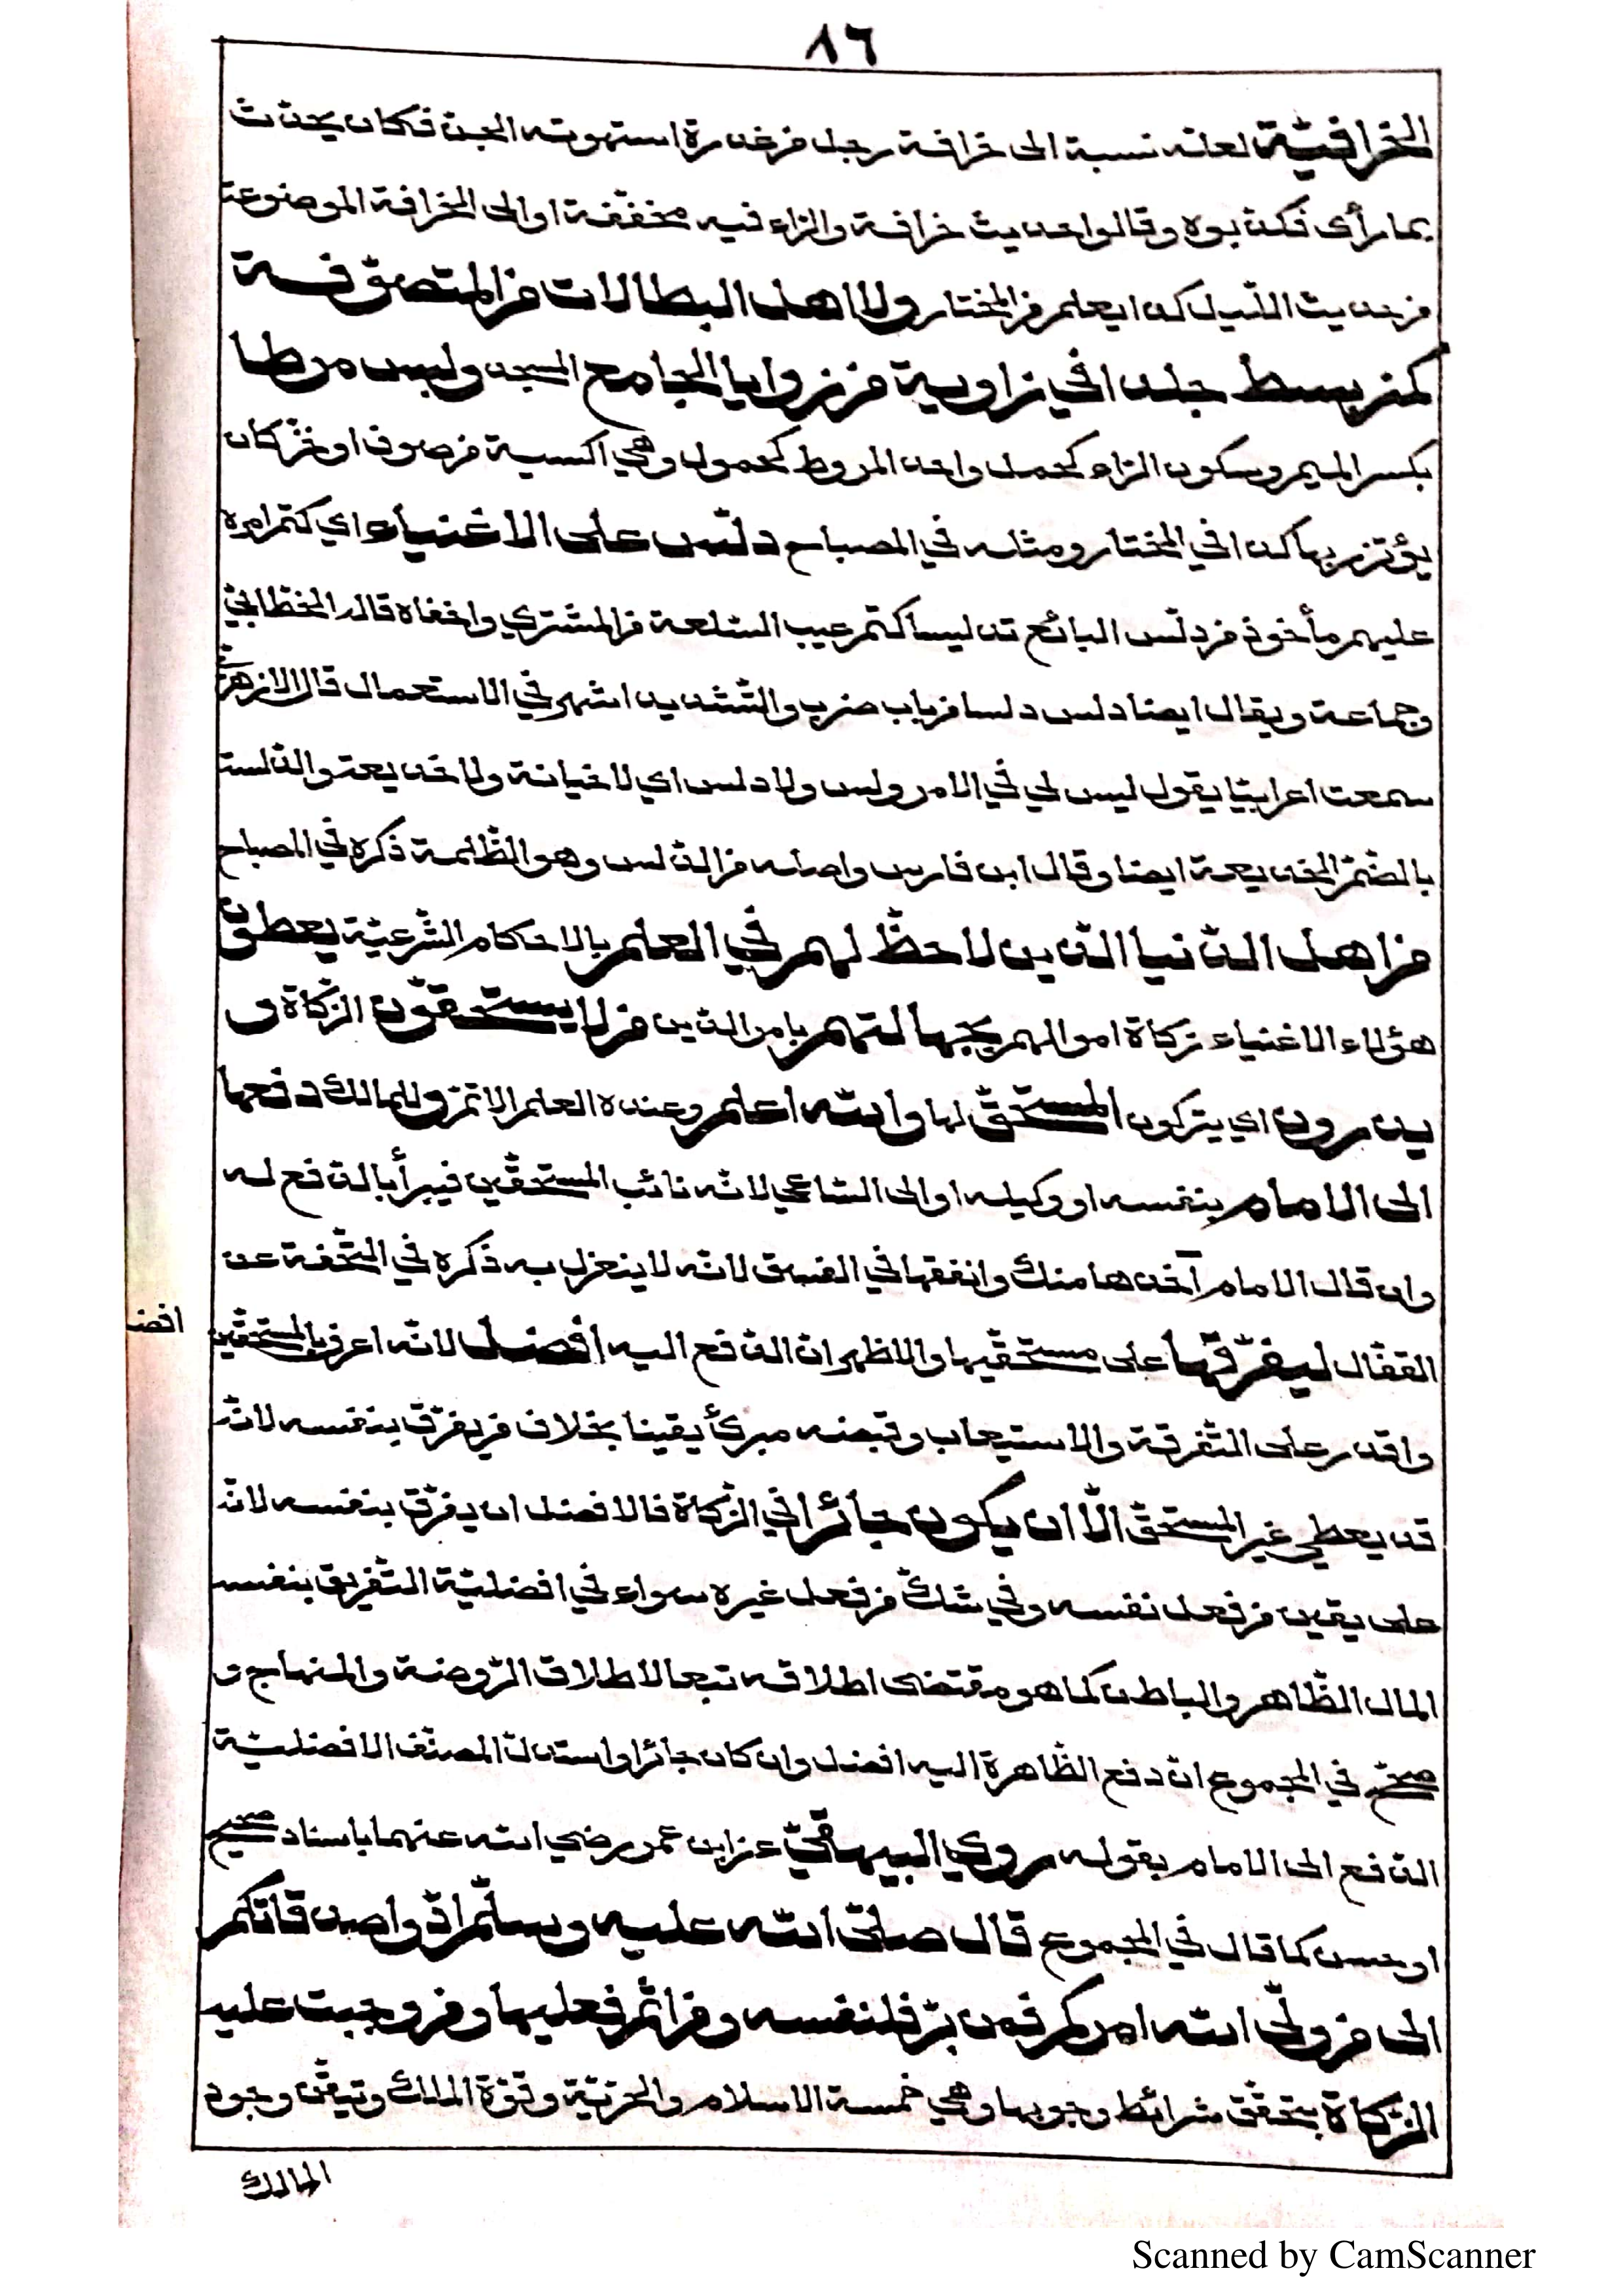 ٨٦
الخرافيّة لعله نسبة الى خرافة رجل من عذرة استهوته الجن فكان يحدّث
بما رأى فكذبوه وقالوا حديث خرافة والراء فيه مخففة او الى الخرافة الموضوعة
من حديث الليل كذا يعلم من المختار ولا اهل البطالات من المتصوّفة
كمن بسط جلدا في زاوية من زوايا الجامع المسجد ولبس مرطا
بكسر الميم وسكون الراء كحمل واحد المروط كحمول وهي اكسية من صوف او خزّ كان
يؤتزر بها كذا في المختار ومثله في المصباح دلّس على الاغنياء اي كتم امره
عليهم مأخوذ من دلّس البائع تدليسا كتم عيب السلعة من المشتري واخفاه قاله الخطّابيّ
وجماعة ويقال ايضا دلس دلسا من باب ضرب والتّشديد اشهر في الاستعمال قال الازهريّ
سمعت اعرابيّا يقول ليس لي في الامر ولس ولا دلس اي لا خيانة ولا خديعة والدّلسة
بالضّمّ الخديعة ايضا وقال ابن فارس واصله من الدّلس وهو الظّلمة ذكره في المصباح
من اهل الدّنيا الّذين لا حظّ لهم في العلم بالاحكام الشّرعيّة يعطون
هؤلاء الاغنياء زكاة اموالهم بجهالتهم بامر الدّين من لا يستحقّون الزّكاة و
يذرون اي يتركون المستحقّ لها والله اعلم وعنده العلم الاتم وللمالك دفعها
الى الامام بنفسه او وكيله او الى السّاعي لانّه نائب المستحقّين فيبرأ بالدّفع له
وان قال الامام آخذها منك وانفقها في الفسق لانّه لا ينعزل به ذكره في التّحفة عن
القفّال ليفرّقها على مستحقّيها والاظهر انّ الدّفع اليه افضل لانّه اعرف بالمستحقّين
افضل
واقدر على التّفرقة والاستيعاب وقبضه مبرئ يقينا بخلاف من يفرّق بنفسه لانّه
قد يعطي غير المستحقّ الّا ان يكون جائرا في الزّكاة فالافضل ان يفرّق بنفسه لانّه
على يقين من فعل نفسه وفي شكّ من فعل غيره سواء في افضليّة التّفريق بنفسه
المال الظّاهر والباطن كما هو مقتضى اطلاقه تبعا لاطلاق الرّوضة والمنهاج و
صحّح في المجموع انّ دفع الظّاهرة اليه افضل وان كان جائرا واستدلّ المصنّف لافضليّة
الدّفع الى الامام بقوله روي البيهقيّ عن ابن عمر رضي الله عنهما باسناد صحيح
او حسن كما قال في المجموع قال صلّى الله عليه وسلّم ادّوا صدقاتكم
الى من ولّى الله امركم فمن برّ فلنفسه ومن اثم فعليها ومن وجبت عليه
الزّكاة بتحقّق شرائط وجوبها وهي خمسة الاسلام والحرّيّة وقوّة الملك وتيقّن وجود
المالك
Scanned by CamScanner